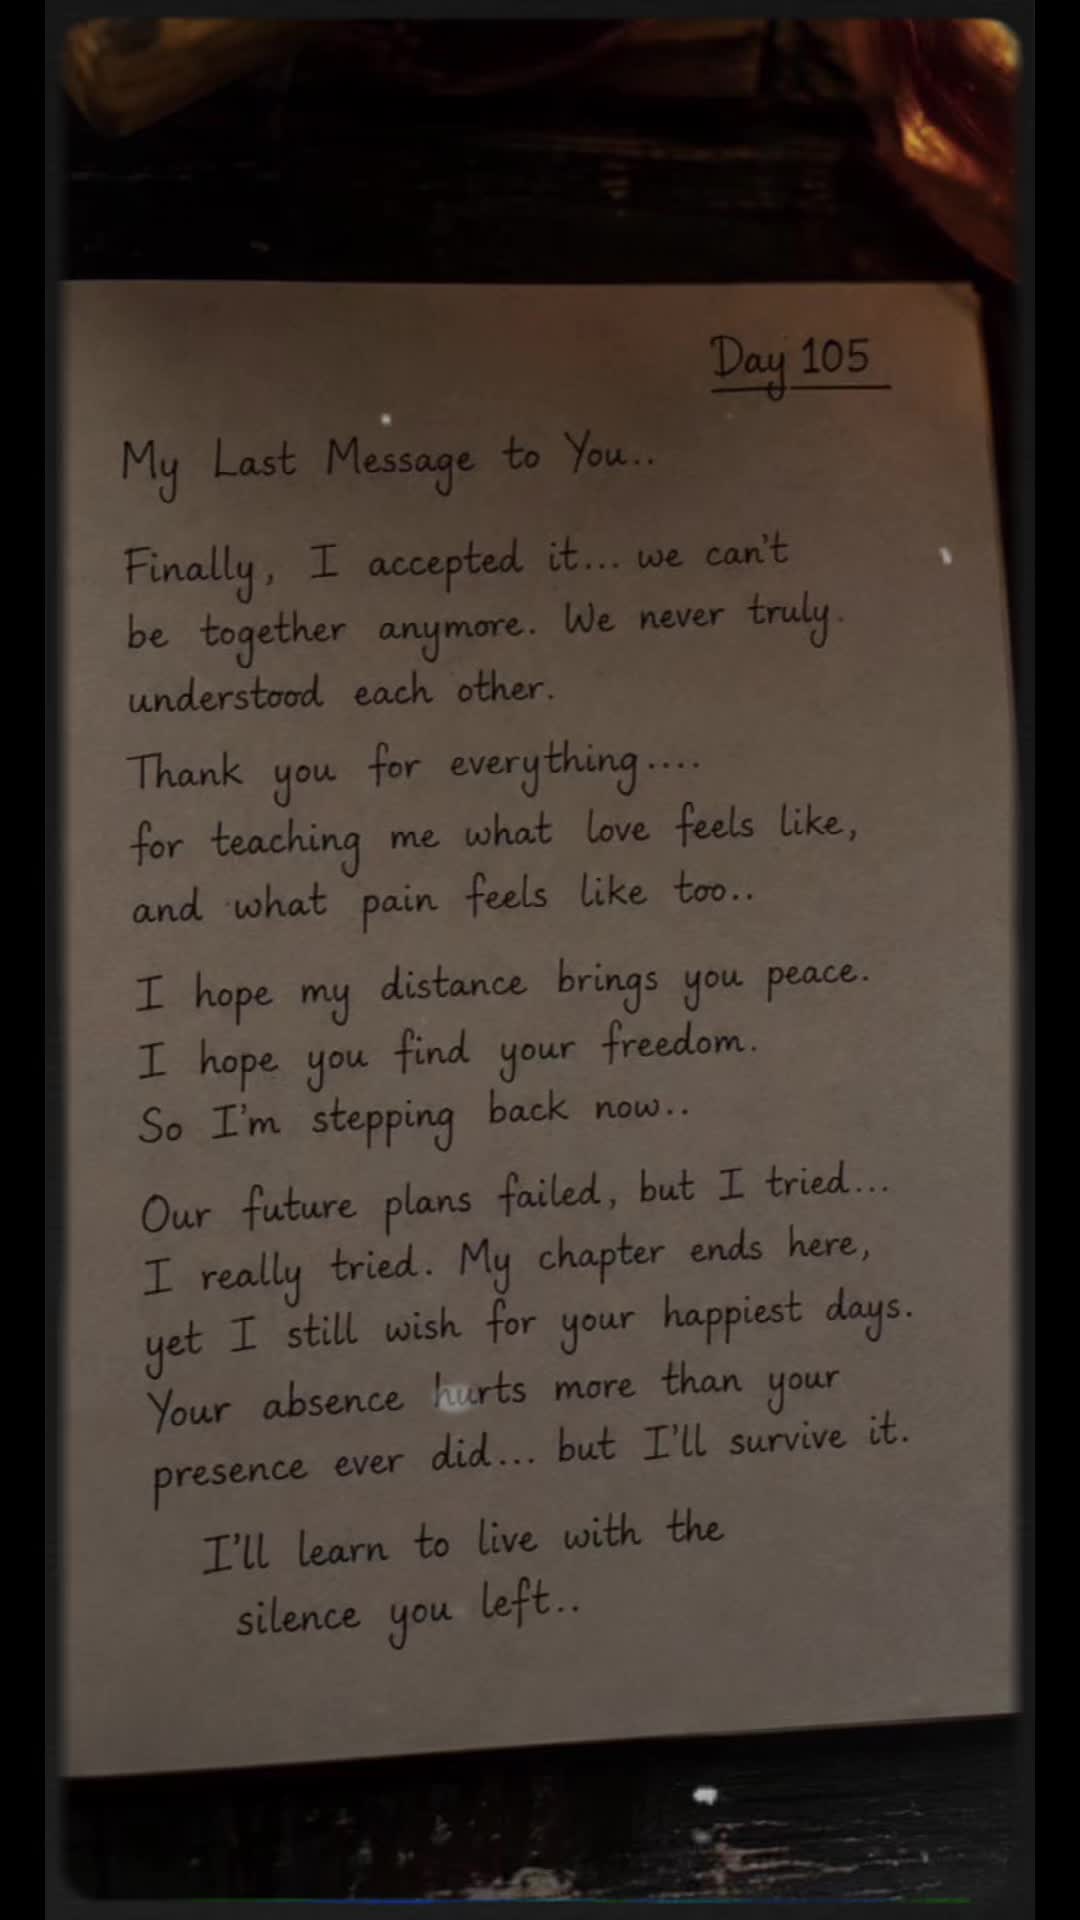 Day 105
My Last Message to You..
Finally, I accepted it... we can't
be together anymore. We never truly.
understood each other.
Thank you for everything....
for teaching me what love feels like,
and what pain feels like too..
I hope my distance brings you peace.
I hope you find your freedom.
So I'm stepping back now..
Our future plans failed, but I tried...
I really tried. My chapter ends here,
yet I still wish for your happiest days.
Your absence hurts more than your
presence ever did... but I'll survive it.
I'll learn to live with the
silence you left..